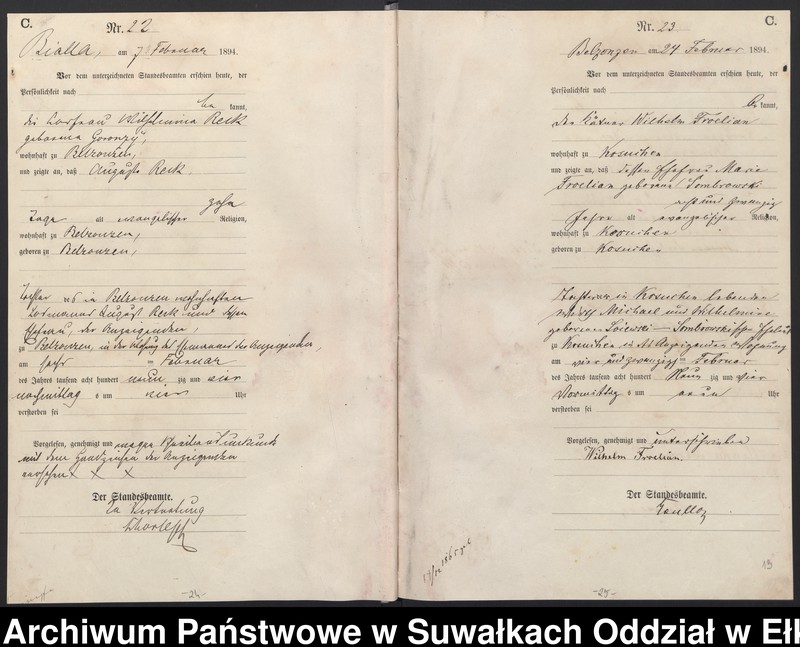 C.
Nr. 22
Bialla, am 7 Februar 1894.
Vor dem unterzeichneten Standesbeamten erschien heute, der
Persönlichkeit nach
be kannt,
die Losfrau Wilhelmine Reck
geborene Goronzy,
wohnhaft zu Belzonzen,
und zeigte an, daß Auguste Reck,
zehn
Tage alt evangelischer Religion,
wohnhaft zu Belzonzen,
geboren zu Belzonzen,
Tochter des in Belzonzen wohnhaften
Losmanns August Reck und dessen
Ehefrau, der Anzeigenden,
zu Belzonzen, in der Wohnung des Ehemannes der Anzeigenden,
am sechs ten Februar
des Jahres tausend acht hundert neun zig und vier
nachmittag s um vier Uhr
verstorben sei
Vorgelesen, genehmigt und wegen
mit dem Handzeichen der Anzeigenden
versehen X X X
Der Standesbeamte.
In Vertretung
-24-
C.
Nr. 23
Belzonzen am 24 Februar 1894.
Vor dem unterzeichneten Standesbeamten erschien heute, der
Persönlichkeit nach
be kannt,
der Kätner Wilhelm Froelian
wohnhaft zu Kosuchen
und zeigte an, daß dessen Ehefrau Marie
Froelian geborene Sombrowski
acht und zwanzig
Jahre alt evangelischer Religion,
wohnhaft zu Kosuchen
geboren zu Kosuchen
Tochter der in Kosuchen lebenden
Michael und Wilhelmine
geborenen Sombrowskischen Eheleute
zu Kosuchen in Wohnung
am vier und zwanzigsten Februar
des Jahres tausend acht hundert Neun zig und vier
Vormittag s um neun Uhr
verstorben sei
Vorgelesen, genehmigt und unterschrieben
Wilhelm Froelian.
Der Standesbeamte.
13
-25-
Archiwum Państwowe w Suwałkach Oddział w Ełk